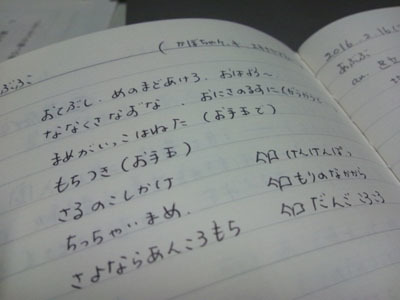 ぶぶ
おてぶし、めのまどあけろ、おはよう〜
ななくさなずな、おにさのるすに
まめがいっこはねた（お手玉で）
もちつき（お手玉）
さるのこしかけ　今日けんけんぱっ
ちっちゃいまめ、　今日もりのなかから
さよならあんころもち　今日だんごごろごろ
2016.2.16
あぶぶ
an